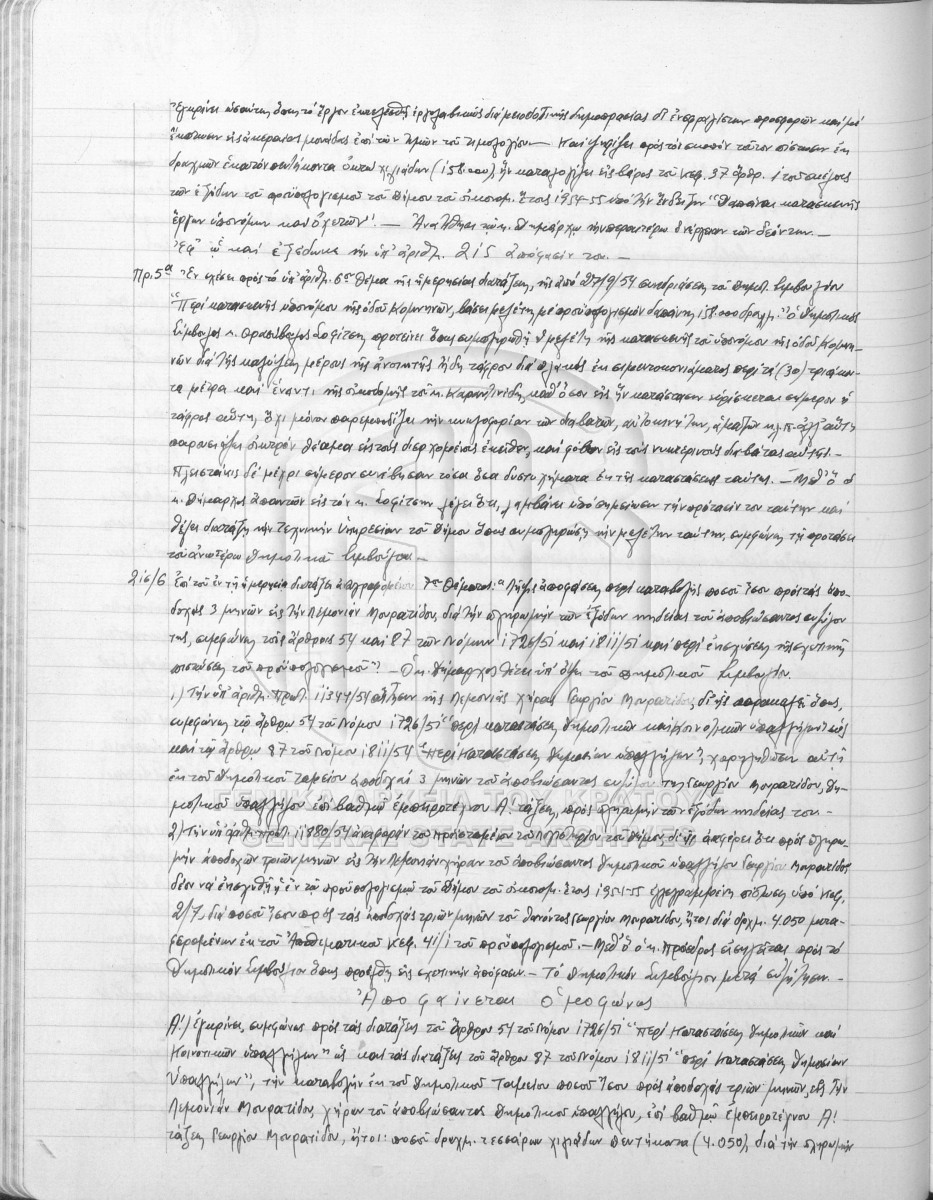 Ἐγκρίνει ὡσαύτως ὅπως τό ἔργον ἐκτελεσθῇ ἐργολαβικῶς διά μειοδοτικῆς δημοπρασίας δι' ἐνσφραγίστων προσφορῶν καί μέ
ἔκπτωσιν εἰς ἀκεραίας μονάδας ἐπί τῶν τιμῶν τοῦ τιμολογίου.— Καί ψηφίζει πρός τόν σκοπόν τοῦτον πίστωσιν ἐκ
δραχμῶν ἑκατόν πεντήκοντα ὀκτώ χιλιάδων (158.000) ἥν καταλογίζει εἰς βάρος τοῦ κεφ. 37 ἄρθρ. 1 τοῦ σκέλους
τῶν ἐξόδων τοῦ προϋπολογισμοῦ τοῦ Δήμου τοῦ οἰκονομ. ἔτους 1954-55 ὑπό τήν ἔνδειξιν "Δαπάναι κατασκευῆς
ἔργων ὑπονόμων καί ὀχετῶν".— Ἀνατίθησι τῷ κ. Δημάρχῳ τήν περαιτέρω ἐνέργειαν τῶν δεόντων.—
Ἐφ' ᾧ καί ἐξεδόθη ἡ ὑπ' ἀριθ. 215 ἀπόφασίν του.—
Πρ: 5ª Ἐν σχέσει πρός τό ὑπ' ἀριθ. 6ον θέμα τῆς ἡμερησίας διατάξεως, τῆς ἀπό 27/9/54 συνεδριάσεως τοῦ Δημοτ. Συμβουλίου
"Περί κατασκευῆς ὑπονόμου τῆς ὁδοῦ Κομνηνῶν, βάσει μελέτης μέ προϋπολογισμόν δαπάνης 158.000 δραχμ." ὁ Δημοτικός
Σύμβουλος κ. Θρασύβουλος Σοφίτσης προτείνει ὅπως συμπληρωθῇ ἡ μελέτη τῆς κατασκευῆς τοῦ ὑπονόμου τῆς ὁδοῦ Κομνη-
νῶν διά τῆς καλύψεως μέρους τῆς ἀνοικτῆς ἤδη τάφρου διά πλακός ἐκ σιμεντοκονιάματος περί τά (30) τριάκον-
τα μέτρα καί ἔναντι τῆς οἰκοδομῆς τοῦ κ. καθ' ὅσον εἰς ἥν κατάστασιν εὑρίσκεται σήμερον ἡ
τάφρος αὕτη, ὄχι μόνον παρεμποδίζει τήν κυκλοφορίαν τῶν διαβατῶν, αὐτοκινήτων, ἁμαξῶν κ.λ.π. ἀλλ' αὕτη
παρουσιάζει οἰκτρόν θέαμα εἰς τούς διερχομένους ἐκεῖθεν, καί φόβον εἰς τούς νυκτερινούς διαβάτας αὐτῆς.—
Πλειστάκις δέ μέχρι σήμερον συνέβησαν τόσα ὅσα δυστυχήματα ἐκ τῆς καταστάσεως ταύτης.— Μεθ' ὅ ὁ
κ. Δήμαρχος ἀπαντῶν εἰς τόν κ. Σοφίτσην λέγει ὅτι, λαμβάνει ὑπό σημείωσιν τήν πρότασίν του ταύτην καί
θέλει διατάξῃ τήν Τεχνικήν Ὑπηρεσίαν τοῦ Δήμου ὅπως συμπληρώσῃ τήν μελέτην ταύτην, συμφώνως τῇ προτάσει
τοῦ ἀνωτέρω Δημοτικοῦ Συμβούλου.—
216/6 Ἐπί τοῦ ἐν τῇ ἡμερησίᾳ διατάξει ἀναγραφομένου 7ου Θέματος: "Λῆψις ἀποφάσεως περί καταβολῆς ποσοῦ ἴσου πρός τάς ἀπο-
δοχάς 3 μηνῶν εἰς τήν Λεμονιάν Μουρατίδου, διά τήν πληρωμήν τῶν ἐξόδων κηδείας τοῦ ἀποβιώσαντος συζύγου
της, συμφώνως τοῖς ἄρθροις 54 καί 87 τῶν Νόμων 1726/51 καί 1811/51 καί περί ἐνισχύσεως τῆς σχετικῆς
πιστώσεως τοῦ προϋπολογισμοῦ".— Ὁ κ. Δήμαρχος θέτει ὑπ' ὄψει τοῦ Δημοτικοῦ Συμβουλίου.
1) Τήν ὑπ' ἀριθ. πρωτ. 11347/54 αἴτησιν τῆς Λεμονιᾶς χήρας Γεωργίου Μουρατίδου, δι' ἧς παρακαλεῖ ὅπως,
συμφώνως τῷ ἄρθρῳ 54 τοῦ Νόμου 1726/51 "περί καταστάσεως Δημοτικῶν καί Κοινοτικῶν ὑπαλλήλων" ὡς
καί τῷ ἄρθρῳ 87 τοῦ Νόμου 1811/51 "Περί Καταστάσεως Δημοσίων ὑπαλλήλων", χορηγηθῶσιν αὐτῇ
ἐκ τοῦ Δημοτικοῦ ταμείου ἀποδοχαί 3 μηνῶν τοῦ ἀποβιώσαντος συζύγου της Γεωργίου Μουρατίδου, Δη-
μοτικοῦ ὑπαλλήλου ἐπί βαθμῷ ἐμπειροτέχνου Α! τάξεως, πρός πληρωμήν τῶν ἐξόδων κηδείας του.—
2) Τήν ὑπ' ἀριθ. πρωτ. 11880/54 ἀναφοράν τοῦ Προϊσταμένου τοῦ Λογιστηρίου τοῦ Δήμου, δι' ἧς ἀναφέρει ὅτι πρός πληρω-
μήν ἀποδοχῶν τριῶν μηνῶν εἰς τήν Λεμονιάν χήραν τοῦ ἀποβιώσαντος Δημοτικοῦ ὑπαλλήλου Γεωργίου Μουρατίδου
δέον νά ἐνισχυθῇ ἡ ἐν τῷ προϋπολογισμῷ τοῦ Δήμου τοῦ οἰκονομ. ἔτους 1954-55 ἐγγεγραμμένη πίστωσις ὑπό Κεφ.
2/7, διά ποσοῦ ἴσου πρός τάς ἀποδοχάς τριῶν μηνῶν τοῦ θανόντος Γεωργίου Μουρατίδου, ἤτοι διά δραχμ. 4.050 μετα-
φερομένων ἐκ τοῦ Ἀποθεματικοῦ κεφ. 41/1 τοῦ προϋπολογισμοῦ.— Μεθ' ὅ ὁ κ. Πρόεδρος εἰσηγεῖται πρός τό
Δημοτικόν Συμβούλιον ὅπως προέλθῃ εἰς σχετικήν ἀπόφασιν.— Τό Δημοτικόν Συμβούλιον μετά συζήτησιν.—
Ἀποφαίνεται ὁμοφώνως
Α!) Ἐγκρίνει, συμφώνως πρός τάς διατάξεις τοῦ ἄρθρου 54 τοῦ Νόμου 1726/51 "Περί Καταστάσεως Δημοτικῶν καί
Κοινοτικῶν ὑπαλλήλων" ὡς καί τάς διατάξεις τοῦ ἄρθρου 87 τοῦ Νόμου 1811/51 "περί Καταστάσεως Δημοσίων
Ὑπαλλήλων", τήν καταβολήν ἐκ τοῦ Δημοτικοῦ Ταμείου ποσοῦ ἴσου πρός ἀποδοχάς τριῶν μηνῶν, εἰς τήν
Λεμονιάν Μουρατίδου, χήραν τοῦ ἀποβιώσαντος Δημοτικοῦ ὑπαλλήλου, ἐπί βαθμῷ ἐμπειροτέχνου Α!
τάξεως Γεωργίου Μουρατίδου, ἤτοι: ποσοῦ δραχμ. τεσσάρων χιλιάδων πεντήκοντα (4.050), διά τήν πληρωμήν
ΓΕΝΙΚΑ ΑΡΧΕΙΑ ΤΟΥ ΚΡΑΤΟΥΣ
GENERAL STATE ARCHIVES